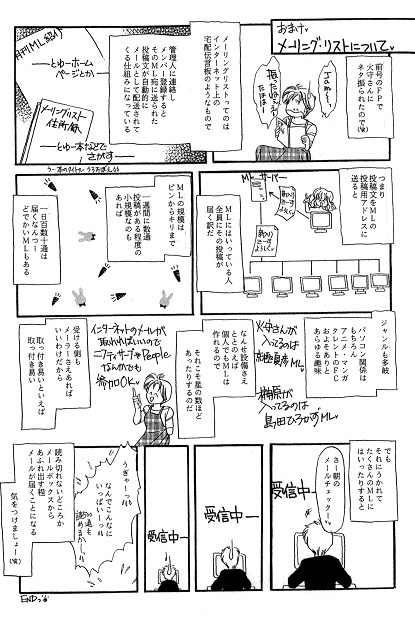 おまけ
メーリング・リストについて
前号のFPで
火守さんに
ネタ振られたので
(笑)
メーリングリストってのは
インターネット上の
宅配伝言板のようなもので
管理人に連絡し
メンバー登録すると
そのML宛に送られた
投稿文が自動的に
メールとして配送されて
くる仕組みになっている
月刊ML紹介
とゆーホーム
ページとか
メーリングリスト
住所録
とゆー本などで
さがす
つまり
投稿文をMLの
投稿用アドレスに
送ると
MLサーバー
MLにはいっている人
全員にその投稿が
届く訳だ
MLの規模は
ピンからキリまで
一週間に数通
投稿がある程度の
小規模なのも
あれば
一日百数十通は
届くなんつー
どでかいMLもある
ジャンルも多岐
パソコン関係は
もちろん
アニメ・マンガ
タレントのFC
およそありと
あらゆる趣味
火守さんが
入ってるのは
入ってるのは
島田ひろかずML
なんせ設備さえ
ととのえば
個人でもMLは
作れるので
それこそ星の数ほど
あったりするのだ
インターネットのメールが
取れればいいので
ニフティサーブやPeople
なんかでも
参加OK
受ける側も
メーラーさえあれば
いいわけだから
取っ付き易いといえば
取っ付き易い
でも
それにうかれて
たくさんのMLに
はいったりすると
さー朝の
メールチェックー
受信中ー
受信中ー
受信中ー
うぎゃーっ
なんでこんなに
いっぱいーっ
読めるかー
読み切れないどころか
メールボックスから
あふれ出す程
メールが届くことになる
気をつけましょー(笑)
END